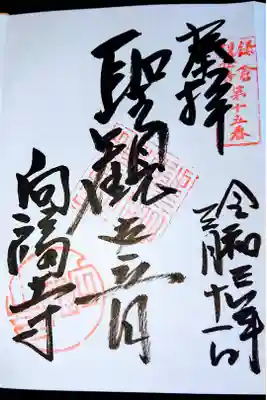 鎌倉
第十五番
奉拝
令和三年
三月十一日
聖観世音
向福寺